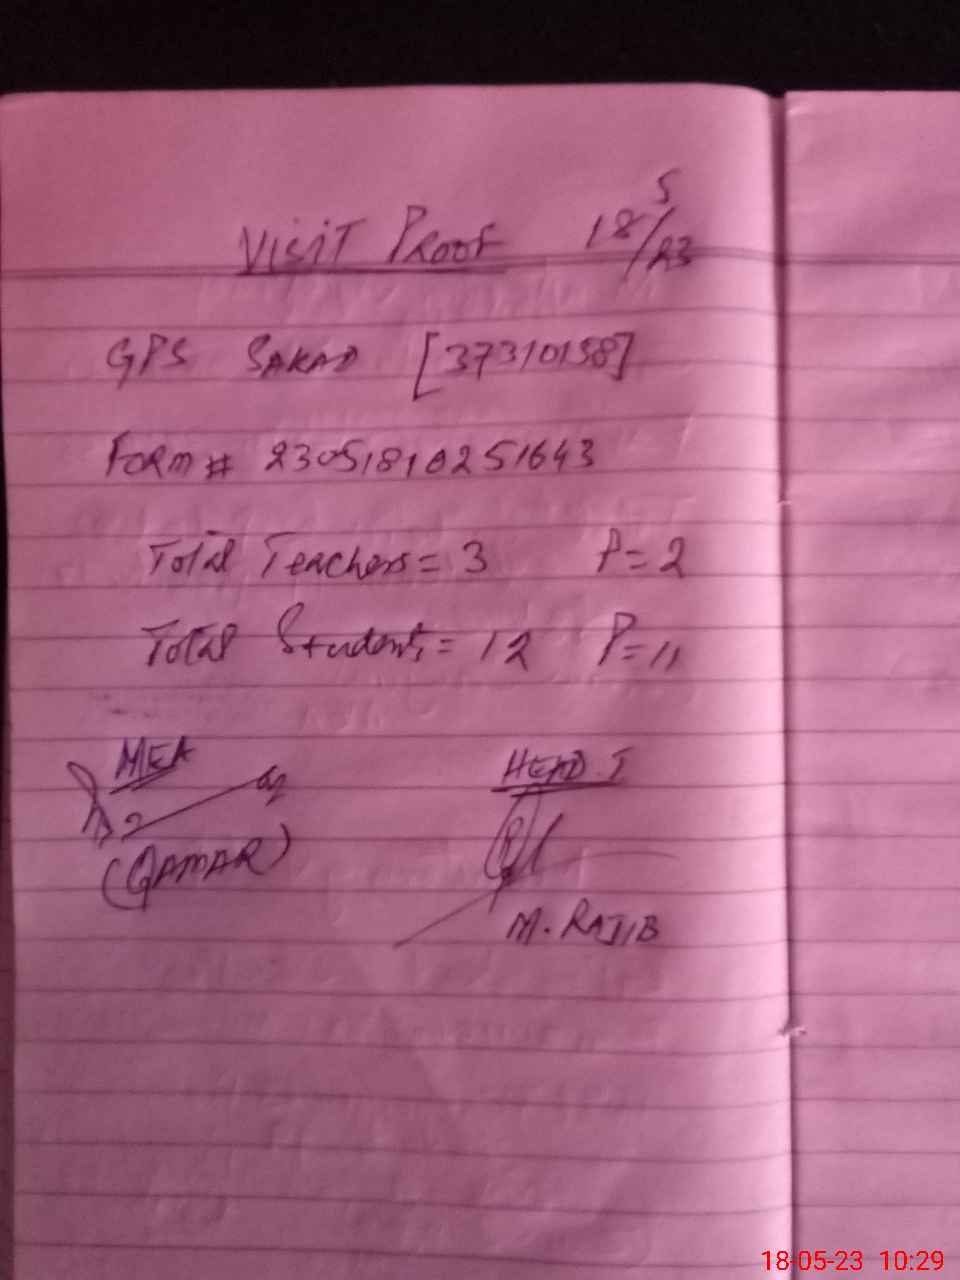 VISIT PROOF 18/5/23
GPS SAKAD [37310158]
FORM # 23051810251643
Total Teachers = 3 P = 2
Total Students = 12 P = 11
MEA HEAD.I
(QAMAR)
M. RAJIB
18-05-23 10:29